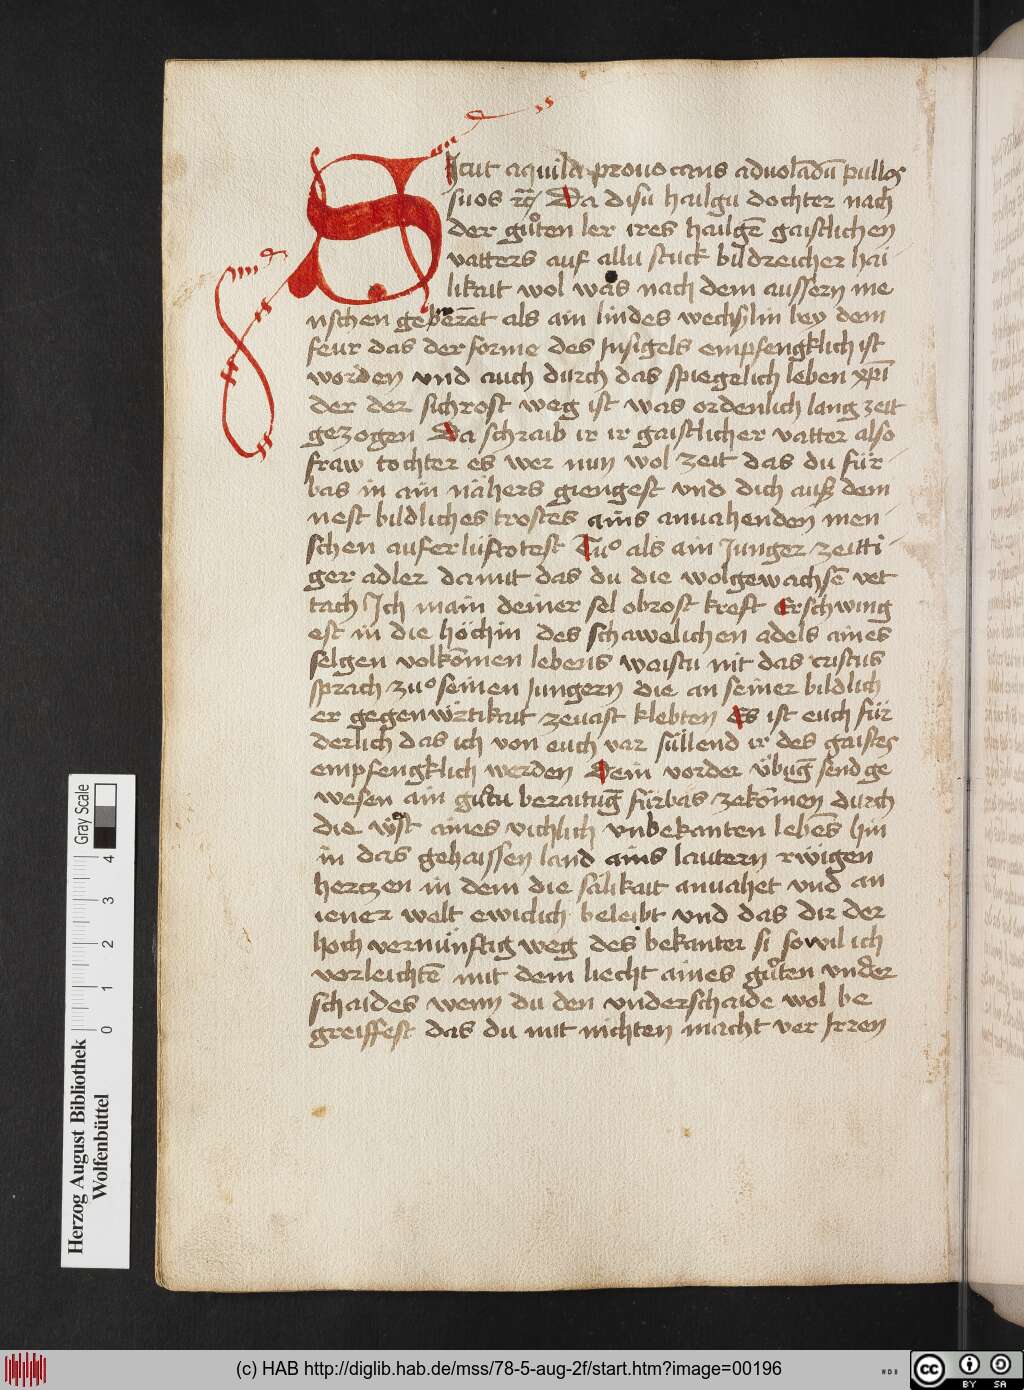 Sicut aquila prouocans aduoladū pullos
suos rc̄ Da disu hailgu dochter nach
der guͦten ler ires hailgē gaistlichen
vatters auf allu stuck bildreicher hai
likait wol was nach dem aussern me
nschen geberēt als ain lindes wechslin bey dem
feur das der forme des Insigels empfengklich ist
worden vnd auch durch das spiegelich leben xp̄i
der der sichrost weg ist was ordenlich lang zeit
gezogen Da schraib ir ir gaistlicher vatter also
fraw tochter es wer nun wol zeit das du für
bas in ain nähers giengest vnd dich auß dem
nest bildliches trostes ains anuahenden men
schen auferlüftotest Tuͦ als ain Junger zeitti
ger adler damit das du die wolgewachsē vet
tach Ich main deiner sel obrost kreft Erschwing
est in die höchin des schawelichen adels aines
selgen volkōmen lebens waistu nit das cristus
sprach zuͦ seinen Jungern die an seiner bildlich
er gegenw̄rtikait zeuast klebten Es ist euch für
derlich das ich von euch var süllend ir des gaistes
empfengklich werden Dein vorder v̈buḡ send ge
wesen ain guͦtu beraituḡ fürbas zekōmen durch
die wͦst aines vichlich vnbekanten lebēs hin
in das gehaissen land ains lautern rwigen
hertzen in dem die sälikait anuahet vnd an
iener welt ewiclich beleibt vnd das dir der
hoch vernünftig weg des bekanter si so vil ich
vorleichtē mit dem liecht aines guͦten vnder
schaides wenn du den vnderschaide wol be
greiffest das du mit nichten macht ver Irren
Herzog August Bibliothek
Wolfenbüttel
Gray Scale
0 1 2 3 4
(c) HAB http://diglib.hab.de/mss/78-5-aug-2f/start.htm?image=00196
WDB
cc BY SA